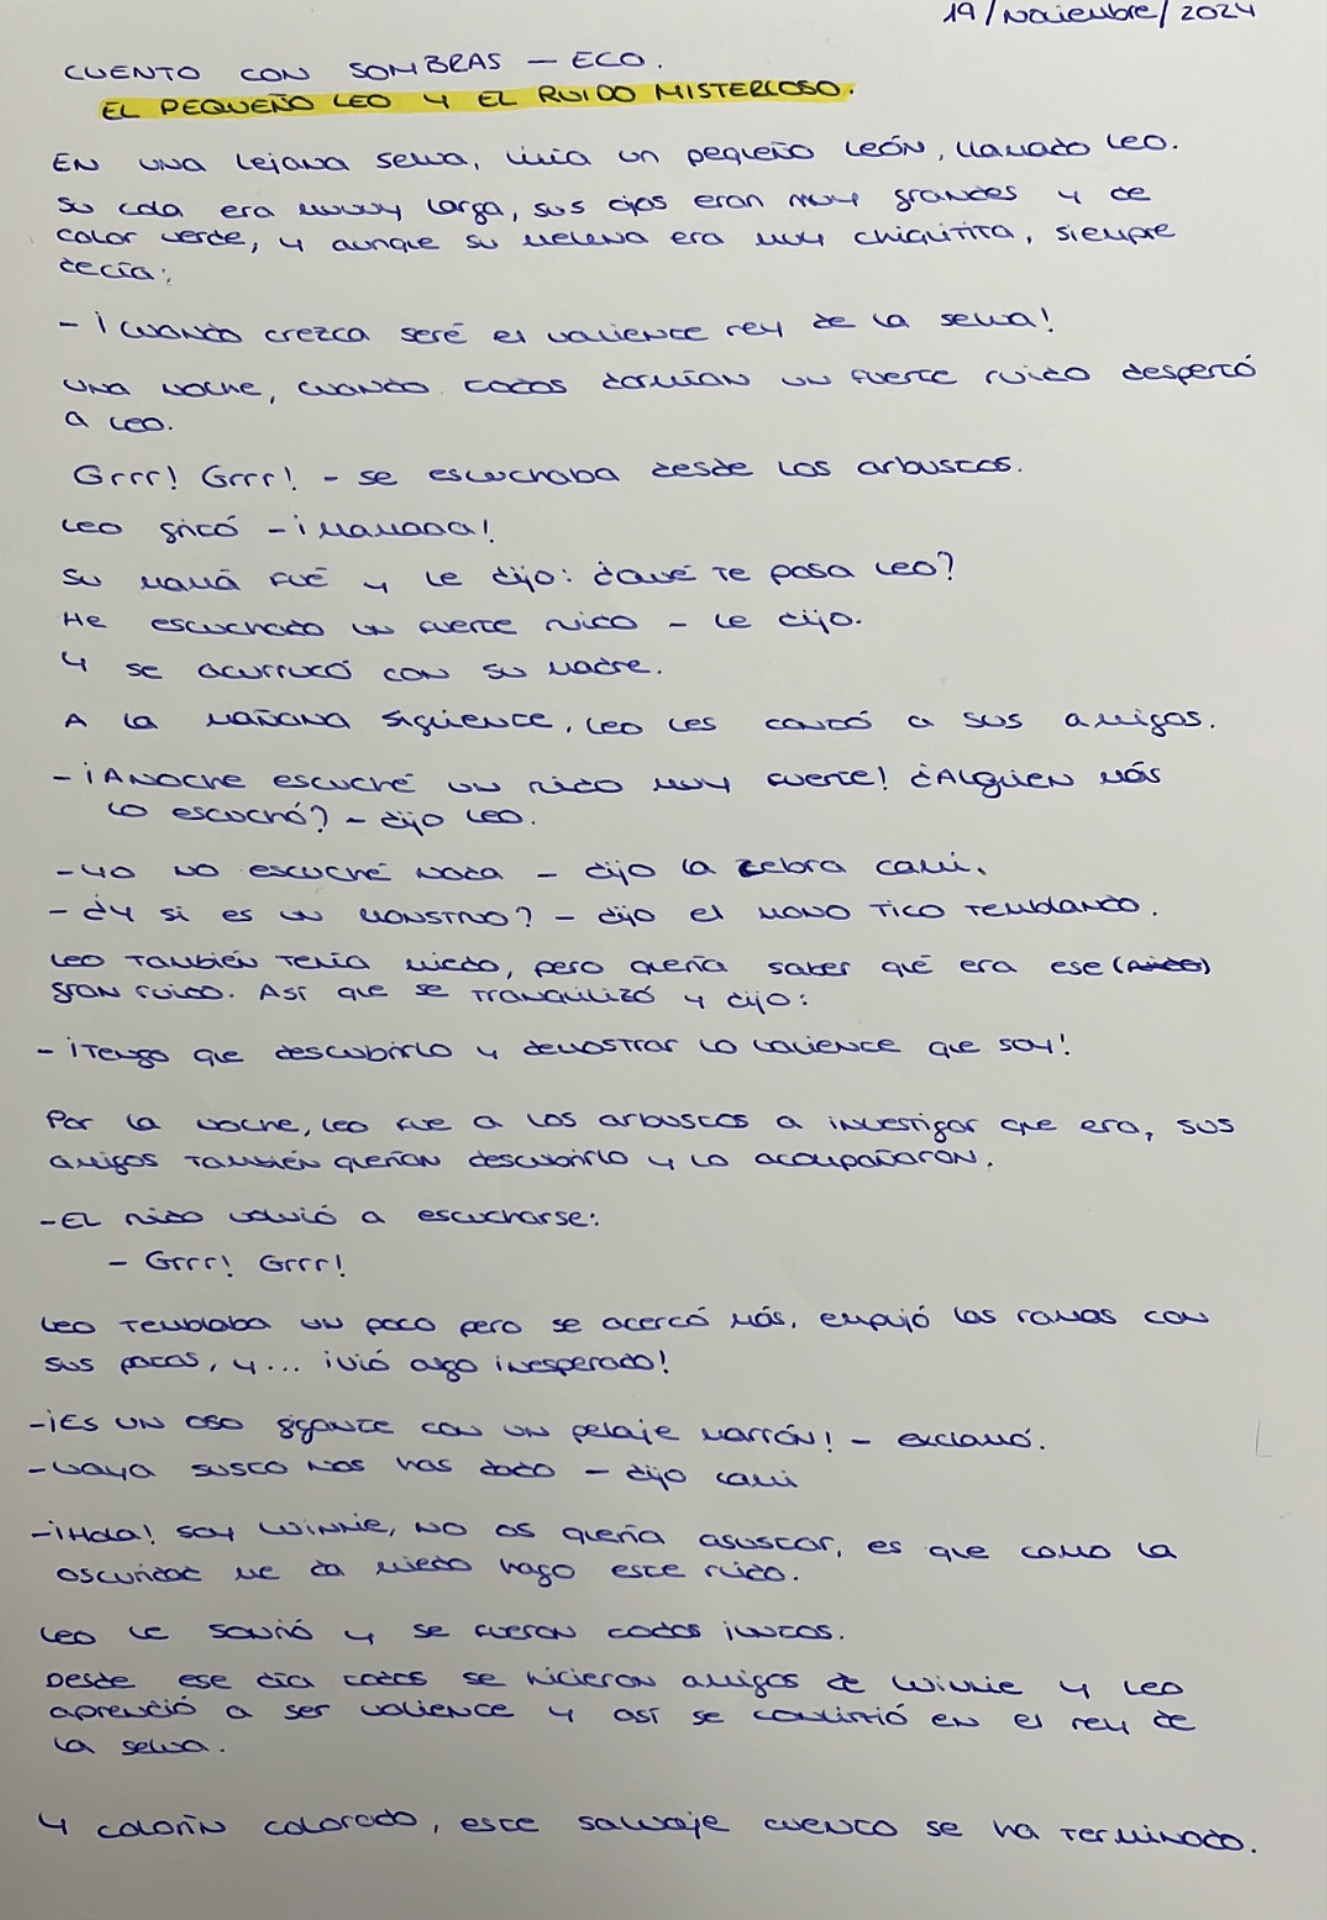 19/Noviembre/2024
CUENTO CON SOMBRAS - ECO.
EL PEQUEÑO LEO Y EL RUIDO MISTERIOSO.
EN UNA Lejana selva, vivía un pequeño LEÓN, llamado Leo.
Su cola era muuuy larga, sus ojos eran muy grandes y de
color verde, y aunque su melena era muy chiquitita, siempre
decía:
- ¡Cuando crezca seré el valiente rey de la selva!
Una noche, cuando todos dormían un fuerte ruido despertó
a Leo.
Grrr! Grrr! - se escuchaba desde los arbustos.
Leo gritó - ¡Mamaaa!
Su mamá fué y le dijo: ¿Qué te pasa Leo?
He escuchado un fuerte ruido - le dijo.
Y se acurrucó con su madre.
A la mañana siguiente, Leo les contó a sus amigos.
- ¡Anoche escuché un ruido muy fuerte! ¿Alguien más
lo escuchó? - dijo Leo.
- Yo no escuché nada - dijo la zebra Cami.
- ¿Y si es un monstruo? - dijo el mono Tico temblando.
Leo también tenía miedo, pero quería saber qué era ese (ruido)
gran ruido. Así que se tranquilizó y dijo:
- ¡Tengo que descubrirlo y demostrar lo valiente que soy!
Por la noche, Leo fue a los arbustos a investigar que era, sus
amigos también querían descubrirlo y lo acompañaron.
- El ruido volvió a escucharse:
- Grrr! Grrr!
Leo temblaba un poco pero se acercó más, empujó las ramas con
sus patas, y... ¡vió algo inesperado!
- ¡Es un oso gigante con un pelaje marrón! - exclamó.
- Vaya susto nos has dado - dijo Cami
- ¡Hola! soy Winnie, no os quería asustar, es que como la
oscuridad me da miedo hago este ruido.
Leo le sonrió y se fueron todos juntos.
Desde ese día todos se hicieron amigos de Winnie y Leo
aprendió a ser valiente y así se convirtió en el rey de
la selva.
Y colorín colorado, este salvaje cuento se ha terminado.